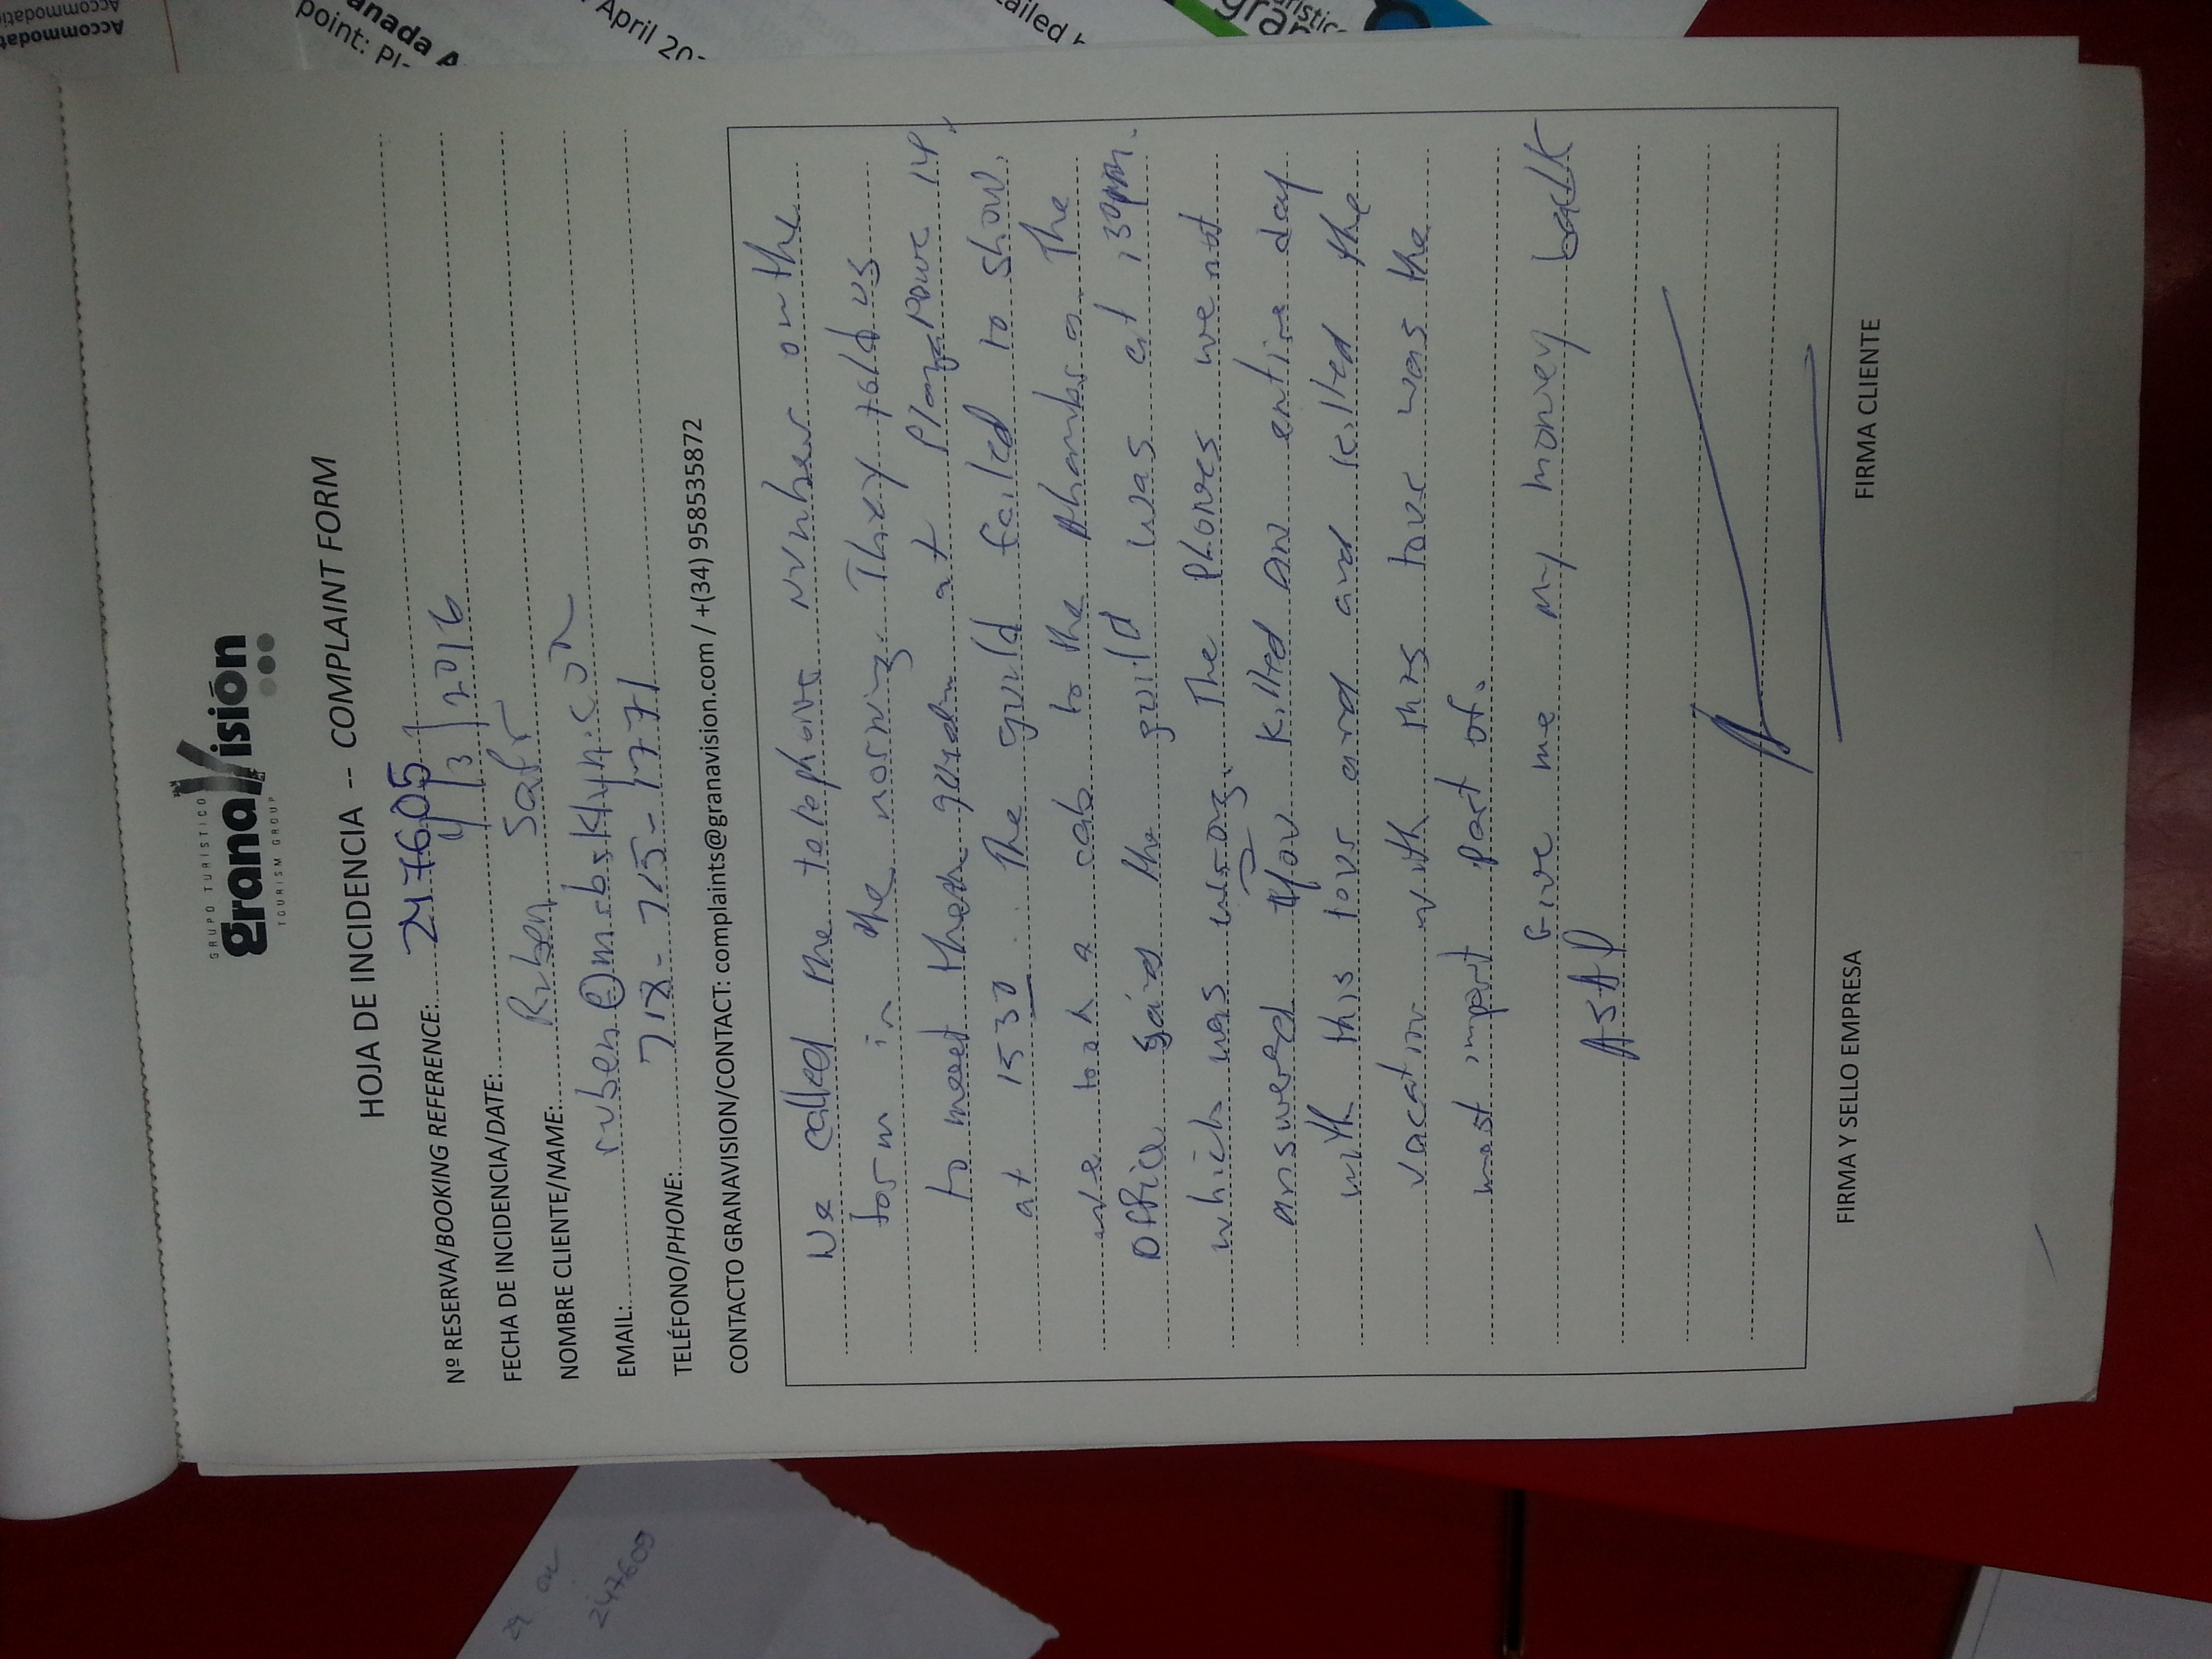 GRUPO TURISTICO
granaVisión
TOURISM GROUP
HOJA DE INCIDENCIA -- COMPLAINT FORM
Nº RESERVA/BOOKING REFERENCE: 247605
FECHA DE INCIDENCIA/DATE: 4/3/2016
NOMBRE CLIENTE/NAME: Ruben Safir
EMAIL: ruben@mrbrklyn.com
TELÉFONO/PHONE: 718-715-1771
CONTACTO GRANAVISION/CONTACT: complaints@granavision.com / +(34) 958535872
We called the telephone number on the
form in the morning. They told us
to meet them at Plaza 14,
at 1530. The guild failed to show.
we took a cab to the Alhambra. The
office said the guild was at 130pm.
which was wrong. The phones we not
answered. You killed an entire day
with this tour and and killed the
vacation with this tour was the
most import part of.
Give me my money back
ASAP
FIRMA Y SELLO EMPRESA
FIRMA CLIENTE
Accommodati
Accommodatio
anada A
point: Pl
April 20
ailed
rístic
gran
247605